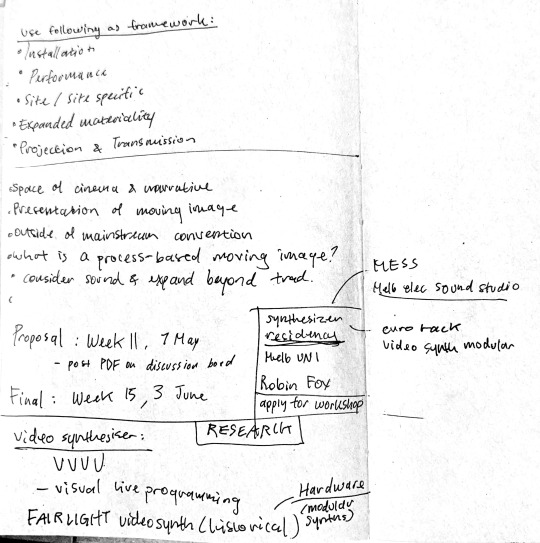 use following as framework:
• Installation
• Performance
• Site / Site specific
• Expanded materiality
• Projection & Transmission
• Space of cinema & narrative
• Presentation of moving image
• outside of mainstream convention
• what is a process-based moving image?
• consider sound & expand beyond trad.
MESS
Melb elec sound studio
synthesizer
residency
Melb UNI
Robin Fox
apply for workshop
euro rack
video synth modular
Proposal : Week 11, 7 May
- post PDF on discussion bord
Final : Week 15, 3 June
RESEARCH
video synthesiser :
VVVV
- visual live programming
Hardware
(modular
synths)
FAIRLIGHT video synth (historical)